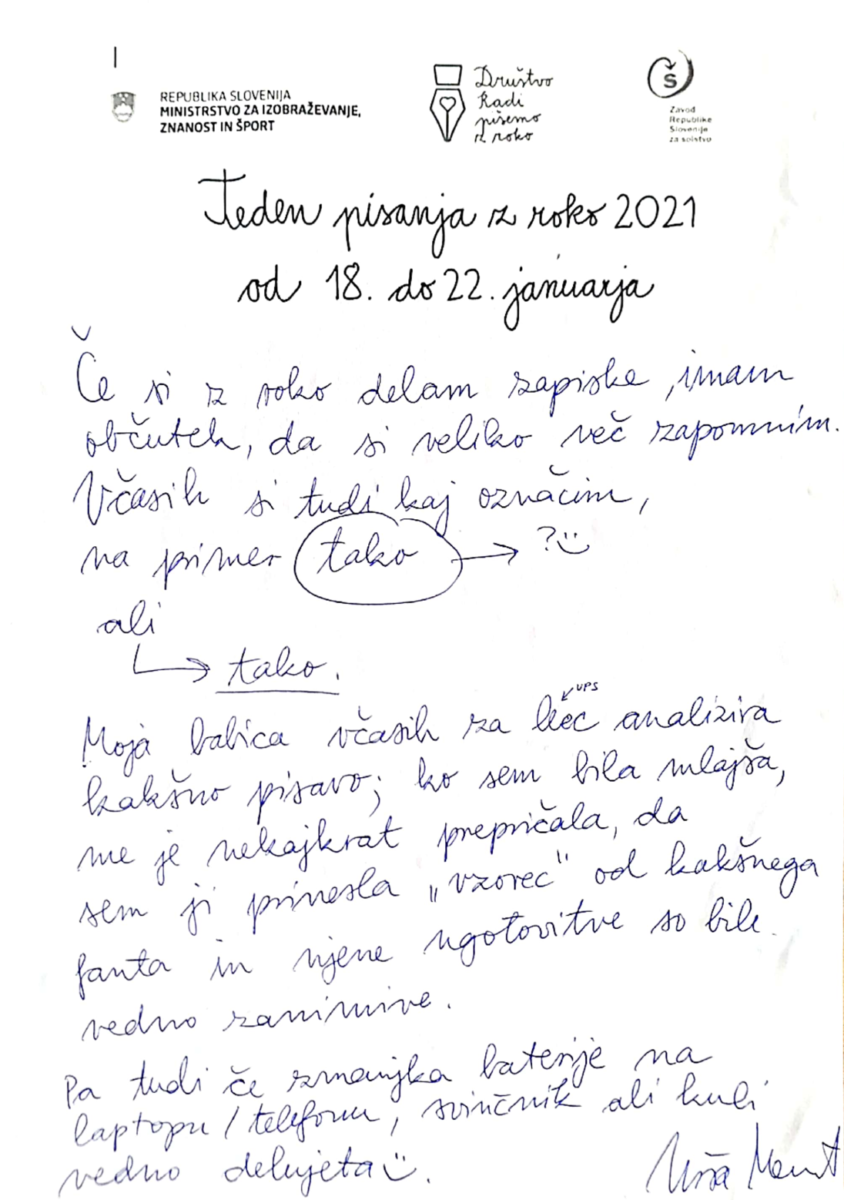 REPUBLIKA SLOVENIJA
MINISTRSTVO ZA IZOBRAŽEVANJE,
ZNANOST IN ŠPORT
Društvo
Radi
pišemo
z roko
Š
Zavod
Republike
Slovenije
za šolstvo
Teden pisanja z roko 2021
od 18. do 22. januarja
Če si z roko delam zapiske, imam
občutek, da si veliko več zapomnim.
Včasih si tudi kaj označim,
na primer tako → ?
ali
tako.
UPS
Moja babica včasih za hec analizira
kakšno pisavo; ko sem bila mlajša,
me je nekajkrat prepričala, da
sem ji prinesla „vzorec" od kakšnega
fanta in njene ugotovitve so bile
vedno zanimive.
Pa tudi če zmanjka baterije na
laptopu/telefonu, svinčnik ali kuli
vedno delujeta.